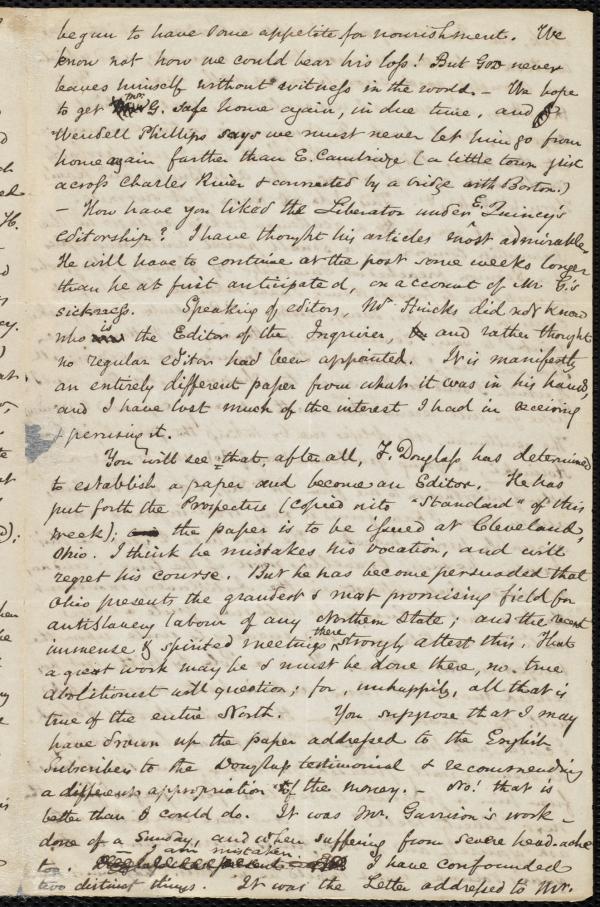 begun to have some appetite for nourishment. We
know not how we could bear his loss! But God never
leaves himself without witness in the world. – We hope
to get Mr. G. safe home again, in due time, and
Wendell Phillips says we must never let him go from
home again farther than E. Cambridge (a little town just
across Charles River & connected by a bridge with Boston.)
– How have you liked the Liberator under E. Quincy's
editorship? I have thought his articles most admirable.
He will have to continue at the post some weeks longer
than he at first anticipated, on account of Mr G's
sickness. Speaking of editors, Mr Hincks did not know
who is the Editor of the Inquirer, and rather thought
no regular editor had been appointed. It is manifestly
an entirely different paper from what it was in his hands,
and I have lost much of the interest I had in receiving
& perusing it.
You will see that, after all, F. Douglass has determined
to establish a paper and become an Editor. He has
put forth the Prospectus (copied into "Standard" of this
week); the paper is to be issued at Cleveland,
Ohio. I think he mistakes his vocation, and will
regret his course. But he has become persuaded that
Ohio presents the grandest & most promising field for
antislavery labour of any Northern State; and the recent
immense & spirited meetings there strongly attest this. That
a great work may be & must be done there, no true
abolitionist will question; for, unhappily, all that is
true of the entire North. You suppose that I may
have drawn up the paper addressed to the English
Subscribers to the Douglass testimonial & recommending
a different appropriation of the money. – No! that is
better than I could do. It was Mr. Garrison's work –
done of a Sunday, and when suffering from severe head-ache
to. – I am mistaken. I have confounded
two distinct things. It was the Letter addressed to Mr.